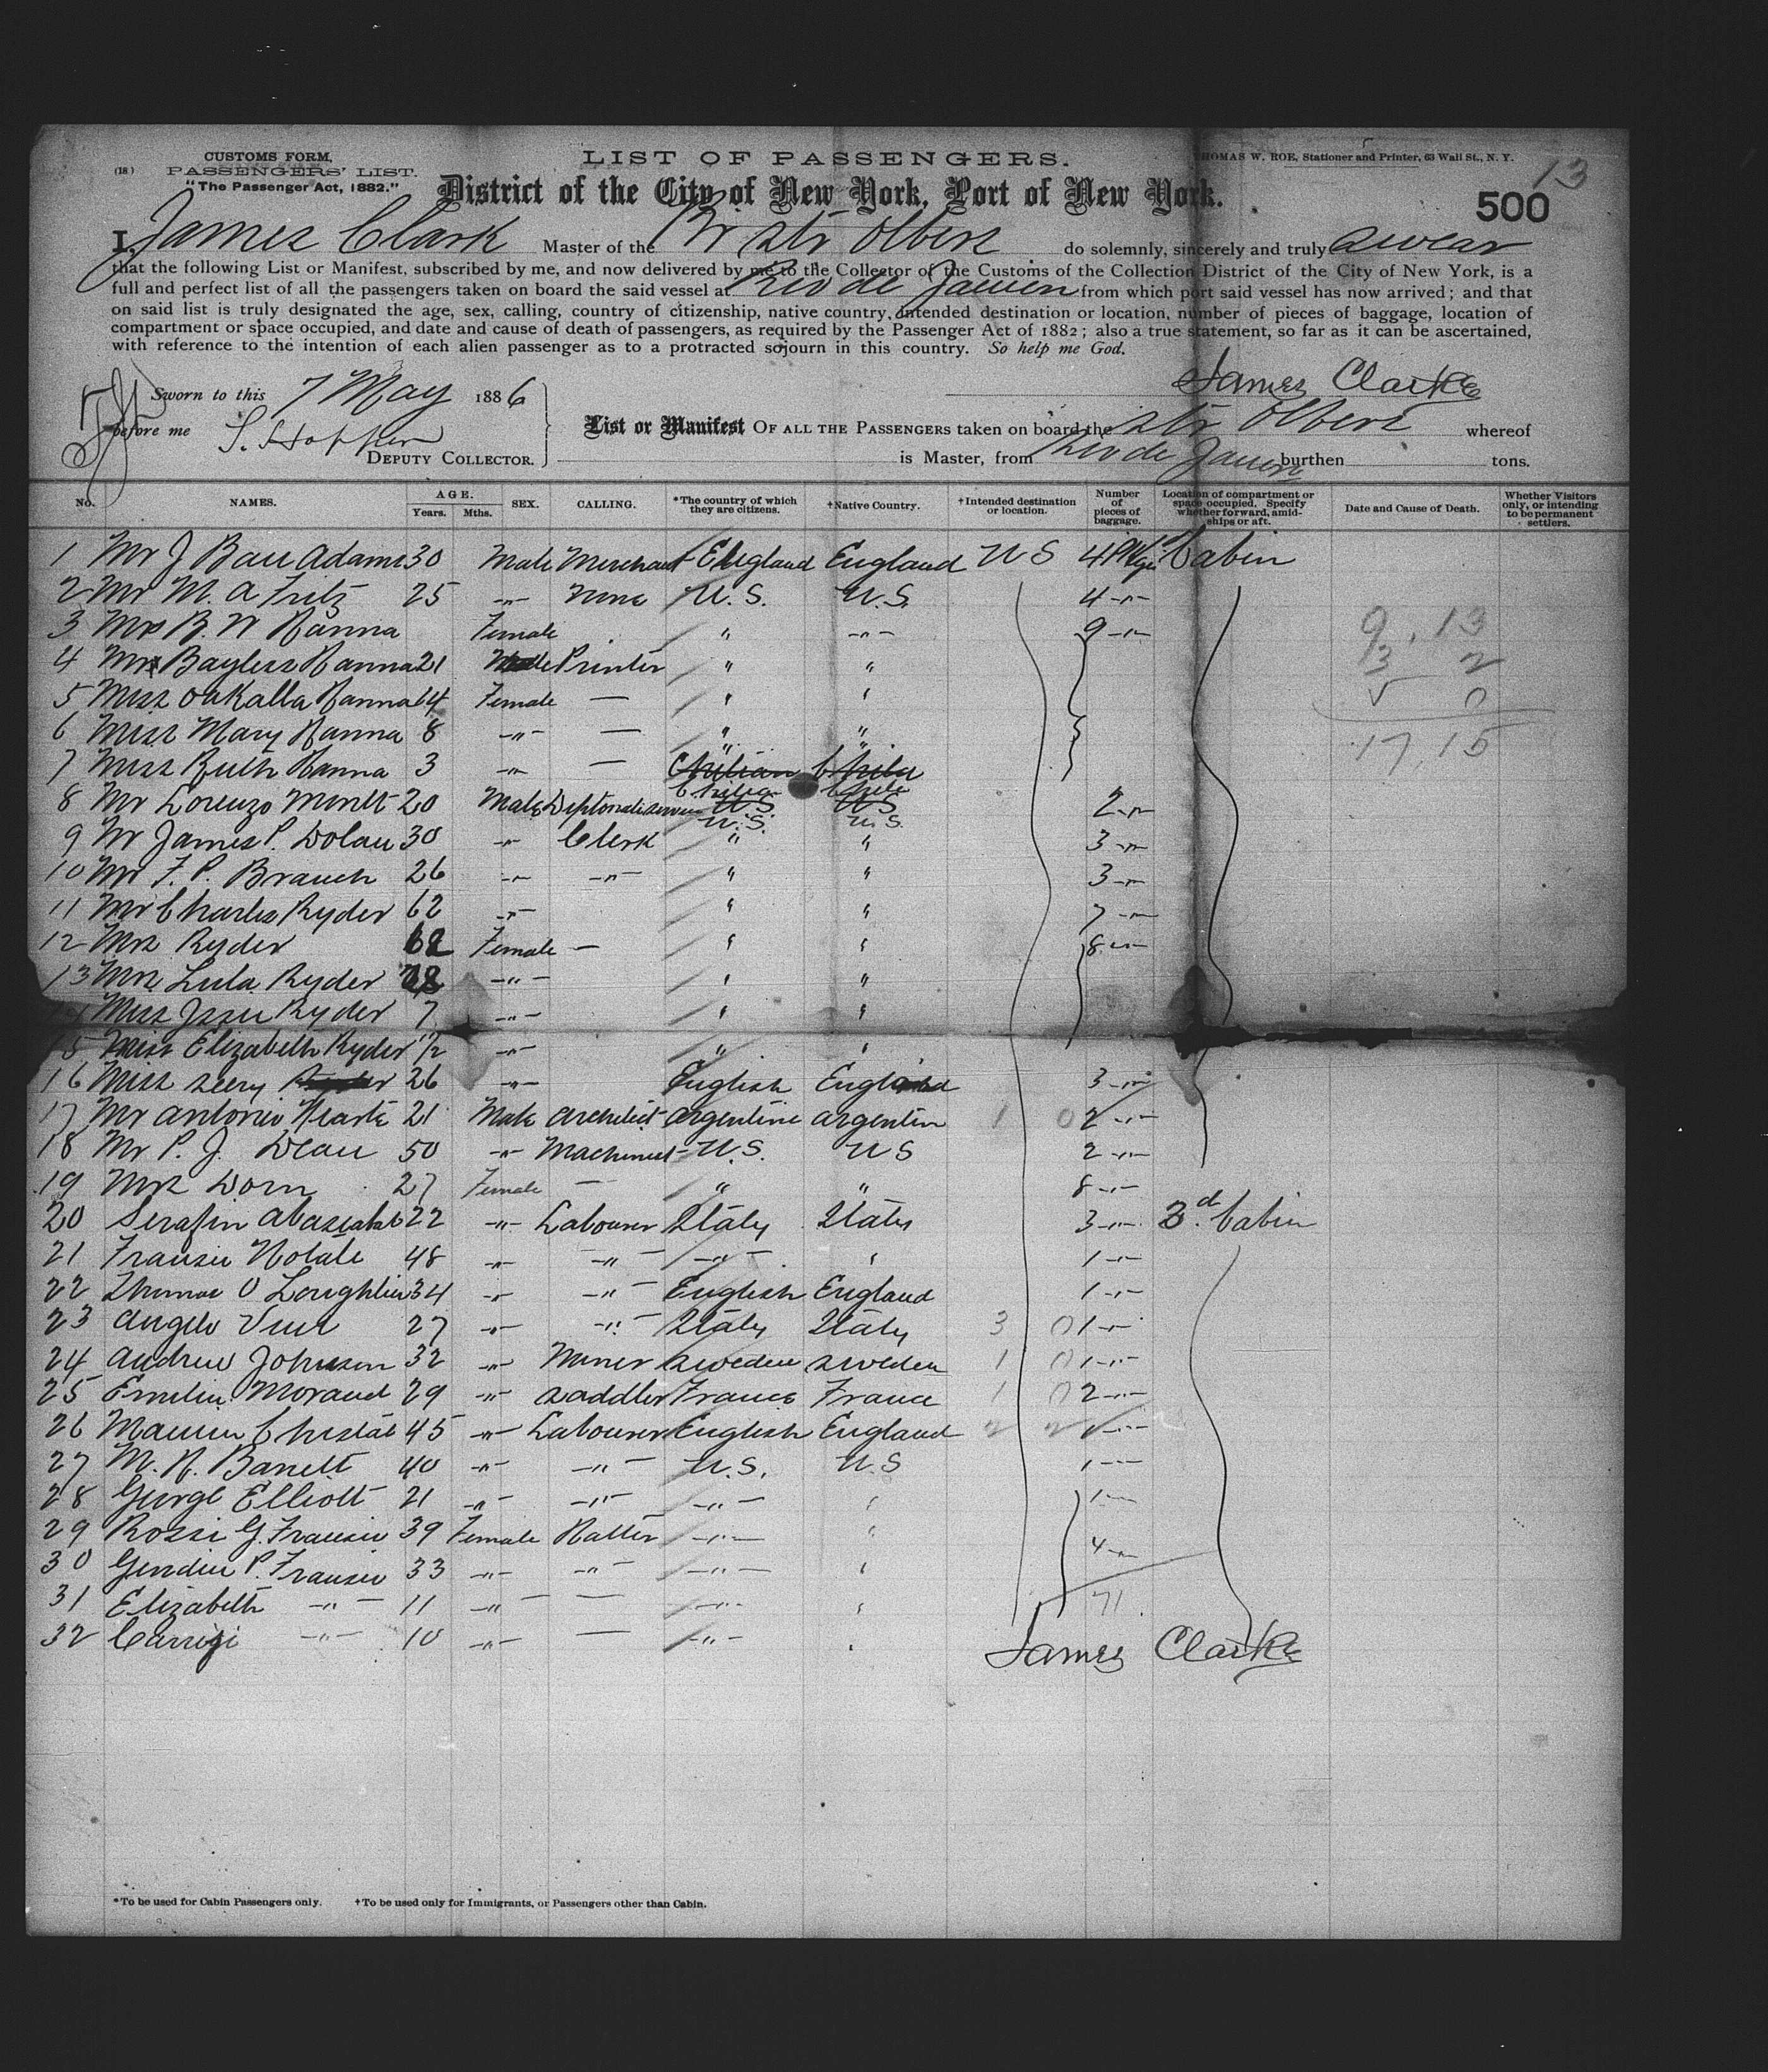 (18)
CUSTOMS FORM,
PASSENGERS' LIST.
"The Passenger Act, 1882."
LIST OF PASSENGERS.
THOMAS W. ROE, Stationer and Printer, 63 Wall St., N. Y.
13
District of the City of New York, Port of New York.
500
I, James Clark Master of the Br Str Olbers do solemnly, sincerely and truly swear
that the following List or Manifest, subscribed by me, and now delivered by me to the Collector of the Customs of the Collection District of the City of New York, is a
full and perfect list of all the passengers taken on board the said vessel at Rio de Janeiro from which port said vessel has now arrived; and that
on said list is truly designated the age, sex, calling, country of citizenship, native country, intended destination or location, number of pieces of baggage, location of
compartment or space occupied, and date and cause of death of passengers, as required by the Passenger Act of 1882; also a true statement, so far as it can be ascertained,
with reference to the intention of each alien passenger as to a protracted sojourn in this country. So help me God.
James Clarke
Sworn to this 7 May 1886
before me
DEPUTY COLLECTOR.
List or Manifest OF ALL THE PASSENGERS taken on board the Str Olbers whereof
is Master, from Rio de Janeiro burthen tons.
No. NAMES. AGE. Years. Mths. SEX. CALLING. *The country of which they are citizens. †Native Country. †Intended destination or location. Number of pieces of baggage. Location of compartment or space occupied. Specify whether forward, amidships or aft. Date and Cause of Death. Whether Visitors only, or intending to be permanent settlers.
1 Mr J Adams 30 Male Merchant England England U S 4 Pkgs Cabin
2 Mr M. A Fritz 25 -"- None U.S. U.S. 4 -"-
3 Mrs R. W Hanna Female " -"- 9 -"-
4 Mr Bayless Hanna 21 Male Printer " "
5 Miss Oakalla Hanna 14 Female — " "
6 Miss Mary Hanna 8 -"- — " "
7 Miss Ruth Hanna 3 -"- — " "
8 Mr Lorenzo Montt 20 Male Chilean Chile 2 -"-
9 Mr James P. Dolan 30 -"- Clerk U.S. U.S. 3 -"-
10 Mr F. P. Branch 26 -"- -"- " " 3 -"-
11 Mr Charles Ryder 62 -"- " " 7 -"-
12 Mrs Ryder 62 Female — " " 8 -"-
13 Mrs Lula Ryder -"- " "
Miss Ryder 7 -"- " "
15 Miss Elizabeth Ryder 1/2 -"- " "
16 Miss 26 -"- English England 3 -"-
17 Mr Antonio 21 Male Architect Argentine Argentin 1 0 2 -"-
18 Mr P. J. Dean 50 -"- Machinist U.S. U S 2 -"-
19 Mrs Dorn 27 Female — " " 8 -"-
20 Serafin 22 -"- Labourer Italy Italy 3 -"- 3d. Cabin
21 48 -"- -"- -"- " 1 -"-
22 O Loughlin 34 -"- -"- English England 1 -"-
23 Angelo 27 -"- -"- Italy Italy 3 0 1 -"-
24 Andrew Johnson 32 -"- Miner Sweden Sweden 1 0 1 -"-
25 Morand 29 -"- Saddler France France 1 0 2 -"-
26 45 -"- Labourer English England 2 2 1 -"-
27 40 -"- -"- U.S. U.S 1 -"-
28 George Elliott 21 -"- -"- -"- " 1 -"-
29 Rossi G. 39 Female Hatter -"- " 4 -"-
30 P. 33 -"- -"- -"- "
31 Elizabeth -"- 11 -"- — -"- "
32 -"- 10 -"- — -"- "
71
9, 13
3 2
5 0
17, 15
James Clarke
*To be used for Cabin Passengers only. †To be used only for Immigrants, or Passengers other than Cabin.